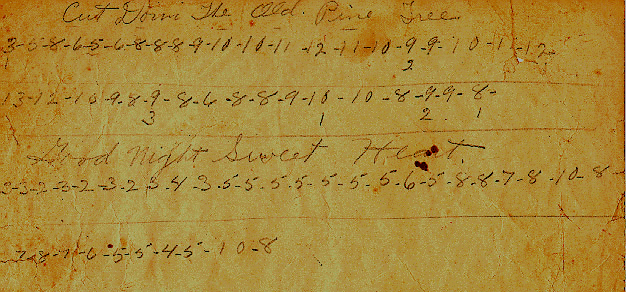 Cut Down The Old Pine Tree
3-5-8-6-5-6-8-8-8-9-10-10-11-12-11-10-9-9-10-11-12
1 2
13-12-10-9-8-9-8-6-8-8-9-10-10-8-9-9-8-
3 1 2 1
Good Night Sweet Heart
3-3-2-3-2-3-2-3-4-3-5-5-5-5-5-5-5-6-5-8-8-7-8-10-8-
7-8-7-6-5-5-4-5-10-8